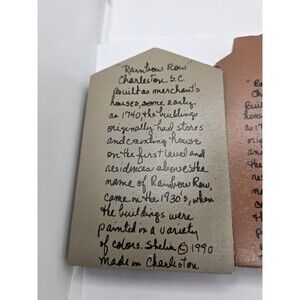 "Rainbow Row"
Charleston S.C
Built as merchant's
houses, some early
as 1740, the buildings
originally had stores
and counting house
on the first level and
residences above the
name of Rainbow Row,
came in the 1930's, when
the buildings were
painted in a variety
of colors. Shelia © 1990
made in Charleston